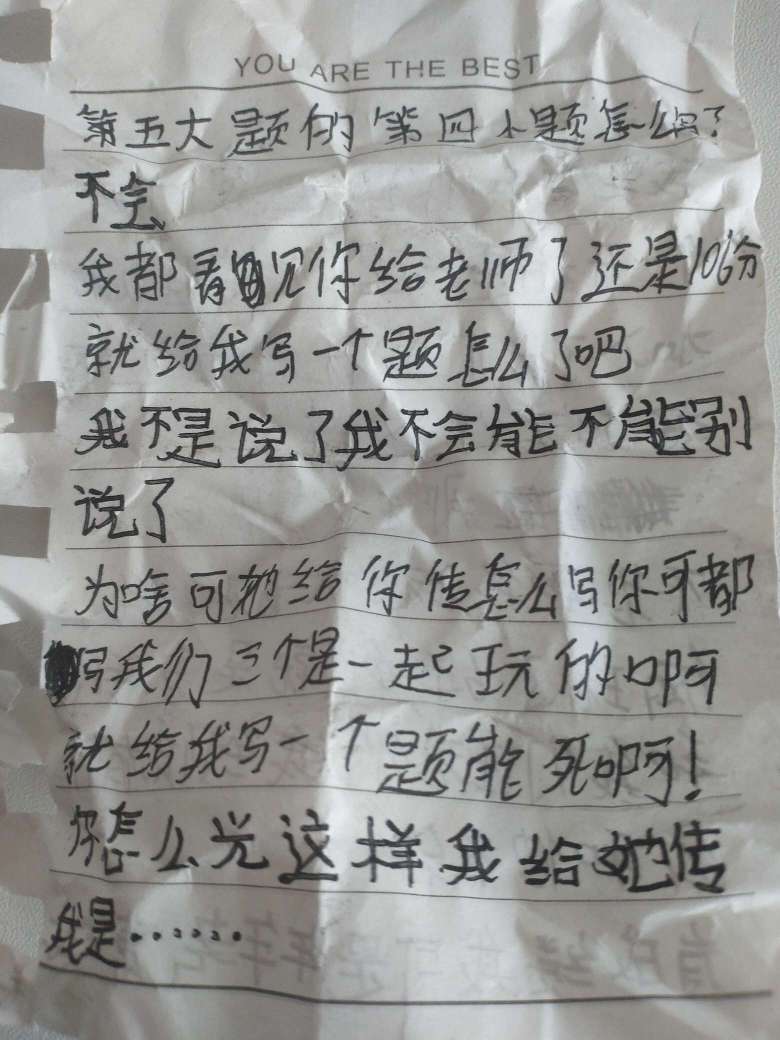 YOU ARE THE BEST
第五大题的第四小题怎么写?
不会
我都看见你给老师了还是106分
就给我写一个题怎么了吧
我不是说了我不会能不能别
说了
为啥可她给你传怎么写你可都
写我们三个是一起玩的啊
就给我写一个题能死啊!
你怎么光这样我给她传
我是……